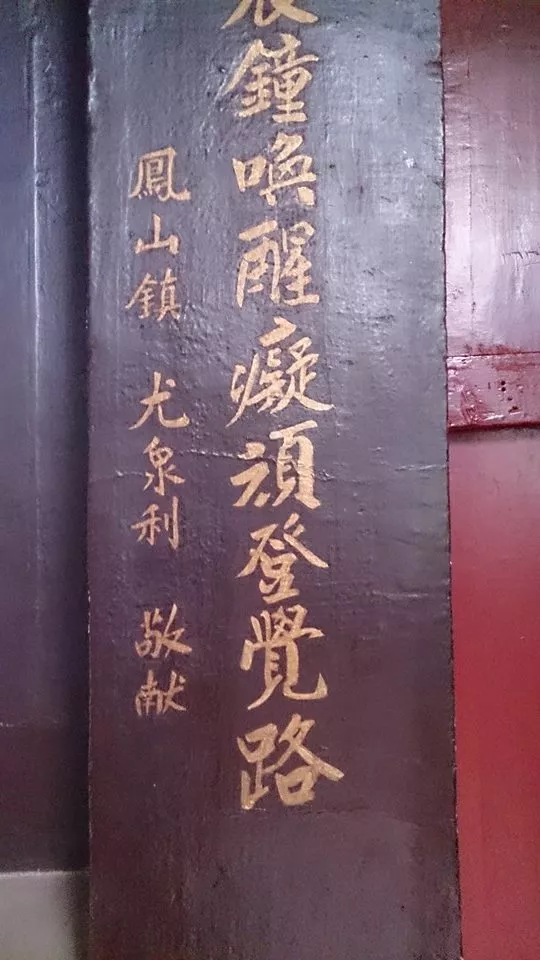 晨鐘喚醒癡頑登覺路
鳳山鎮 尤泉利 敬献